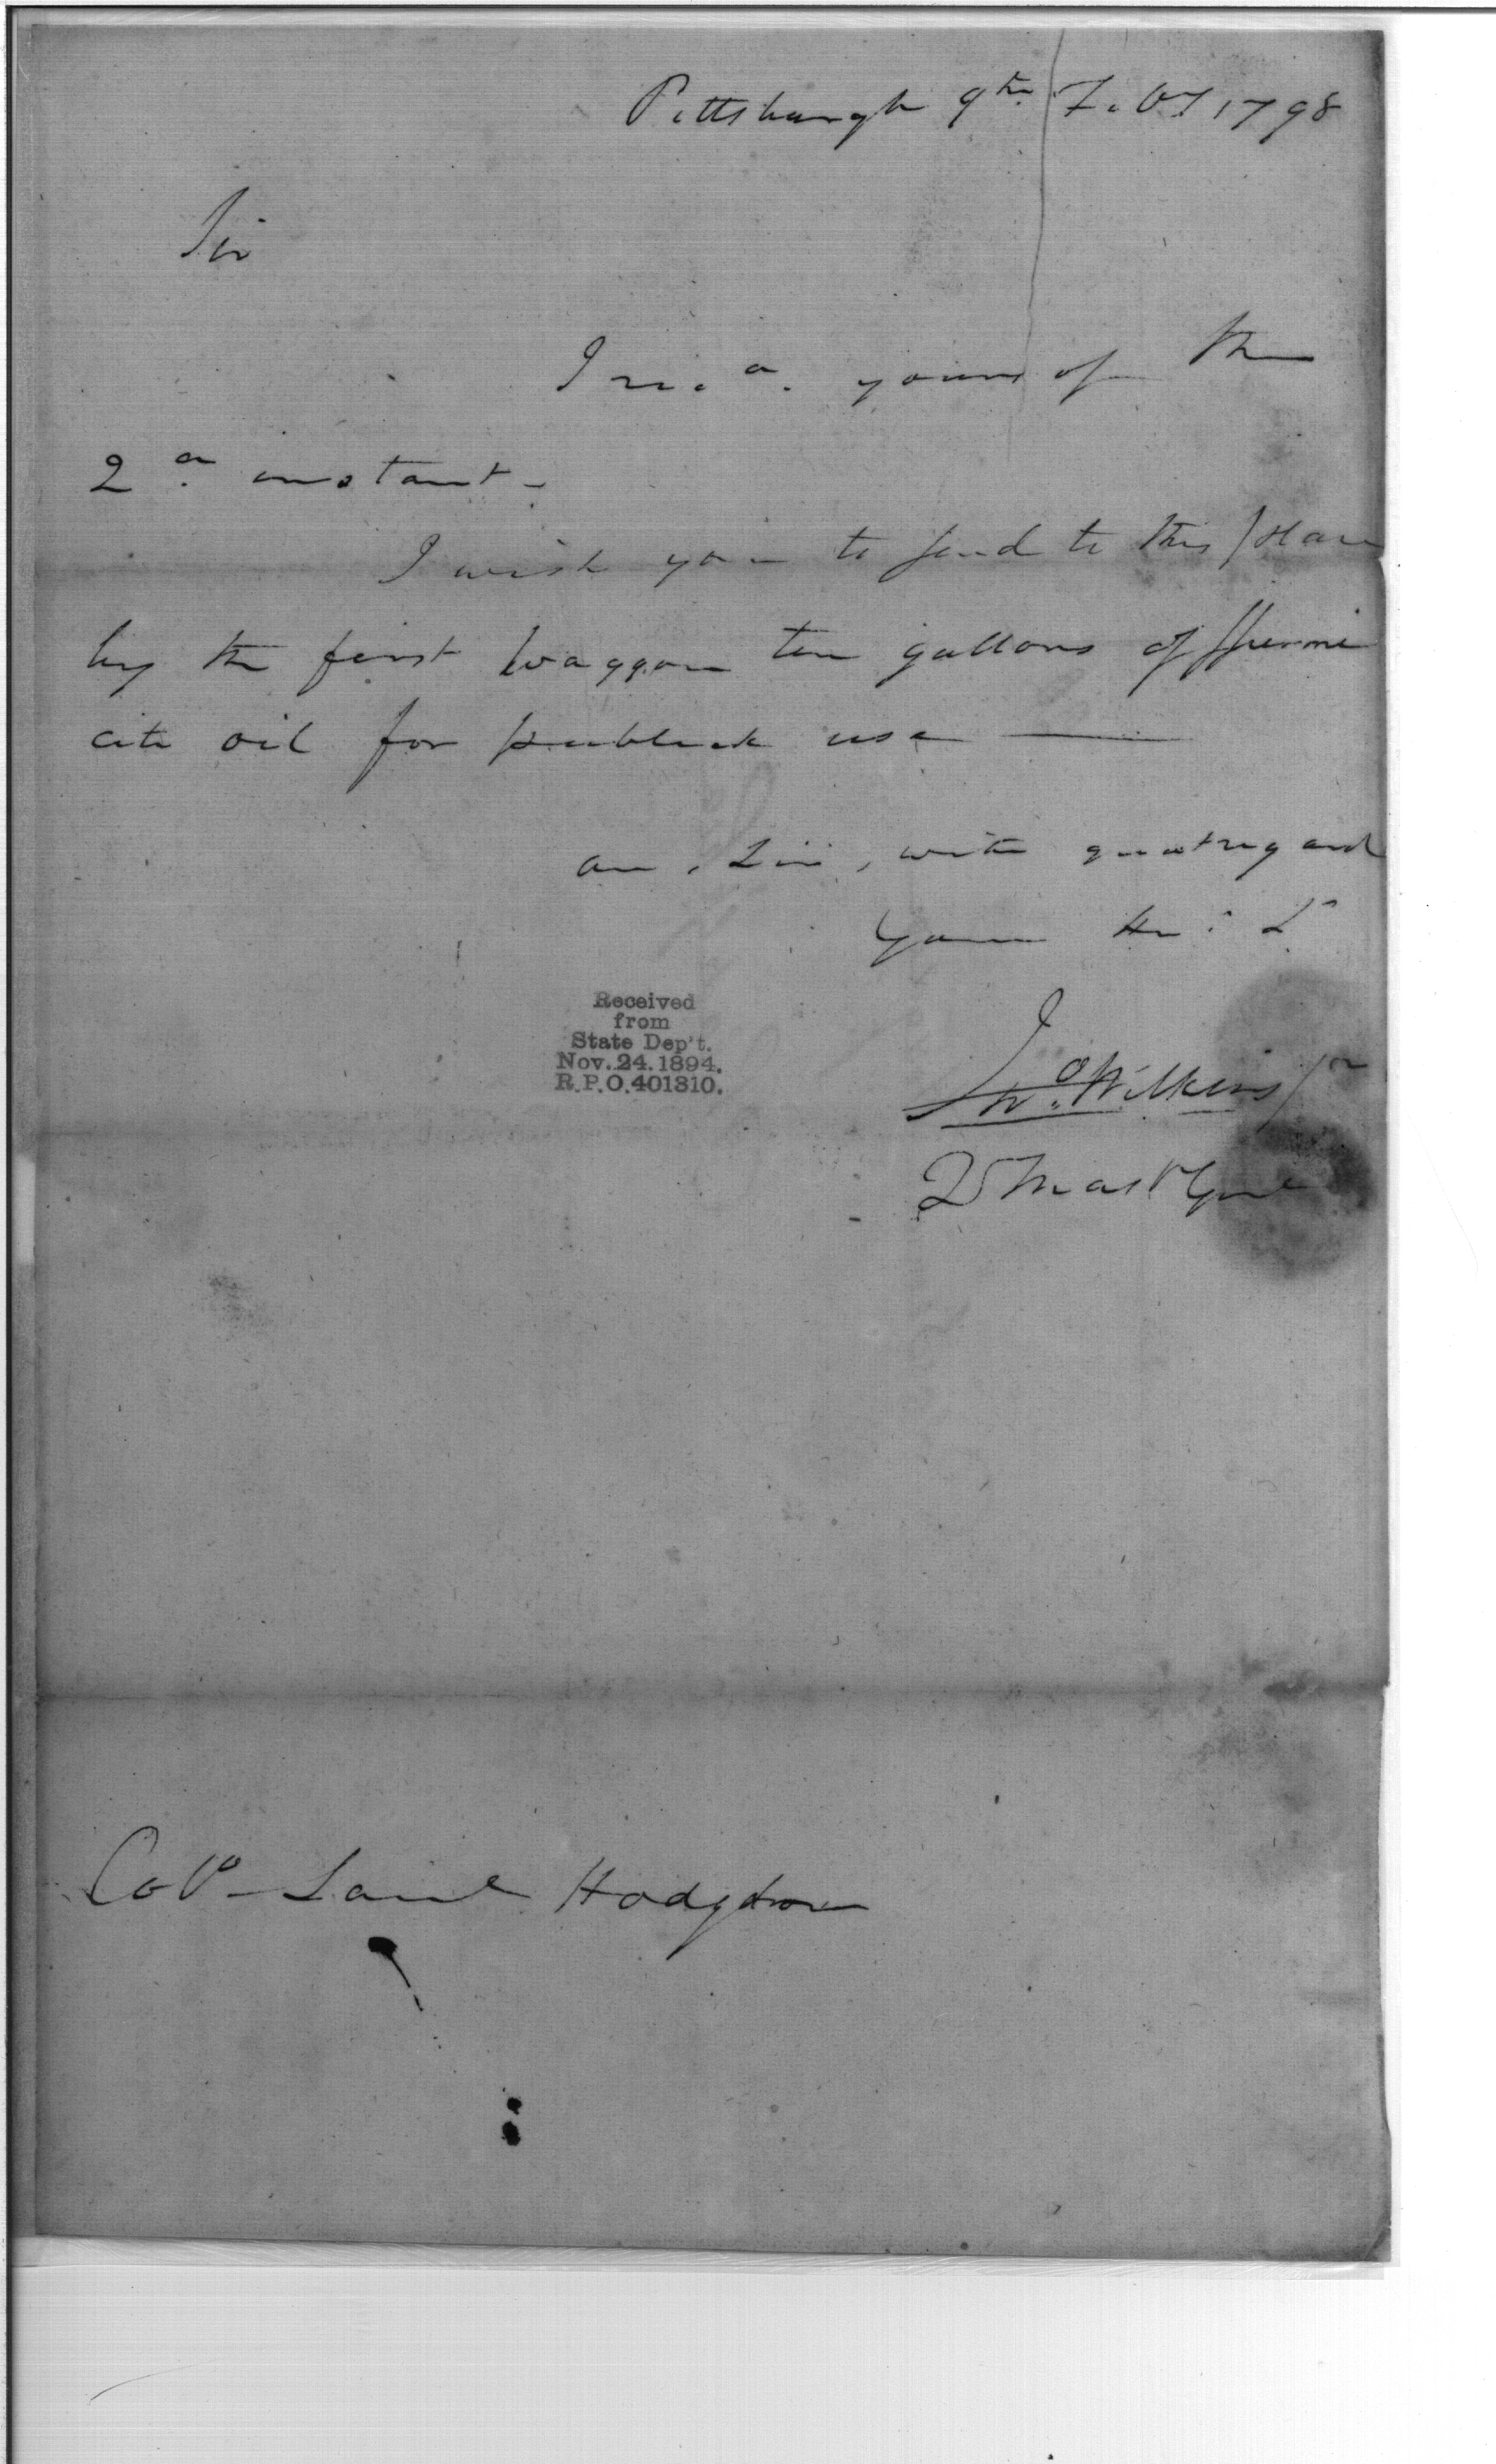 Pittsburgh 9th Feby 1798
Sir
I recd. yours of the
2d instant -
I wish you to send to this place
by the first waggon ten gallons of spermi
citi oil for publick use
am, Sir, with great regard
Your Hu: St
Received
from
State Dep't.
Nov. 24. 1894.
R.P.O. 401810.
Jno. Wilkins Jr
QrMastrGenl
Colo Saml Hodgdon